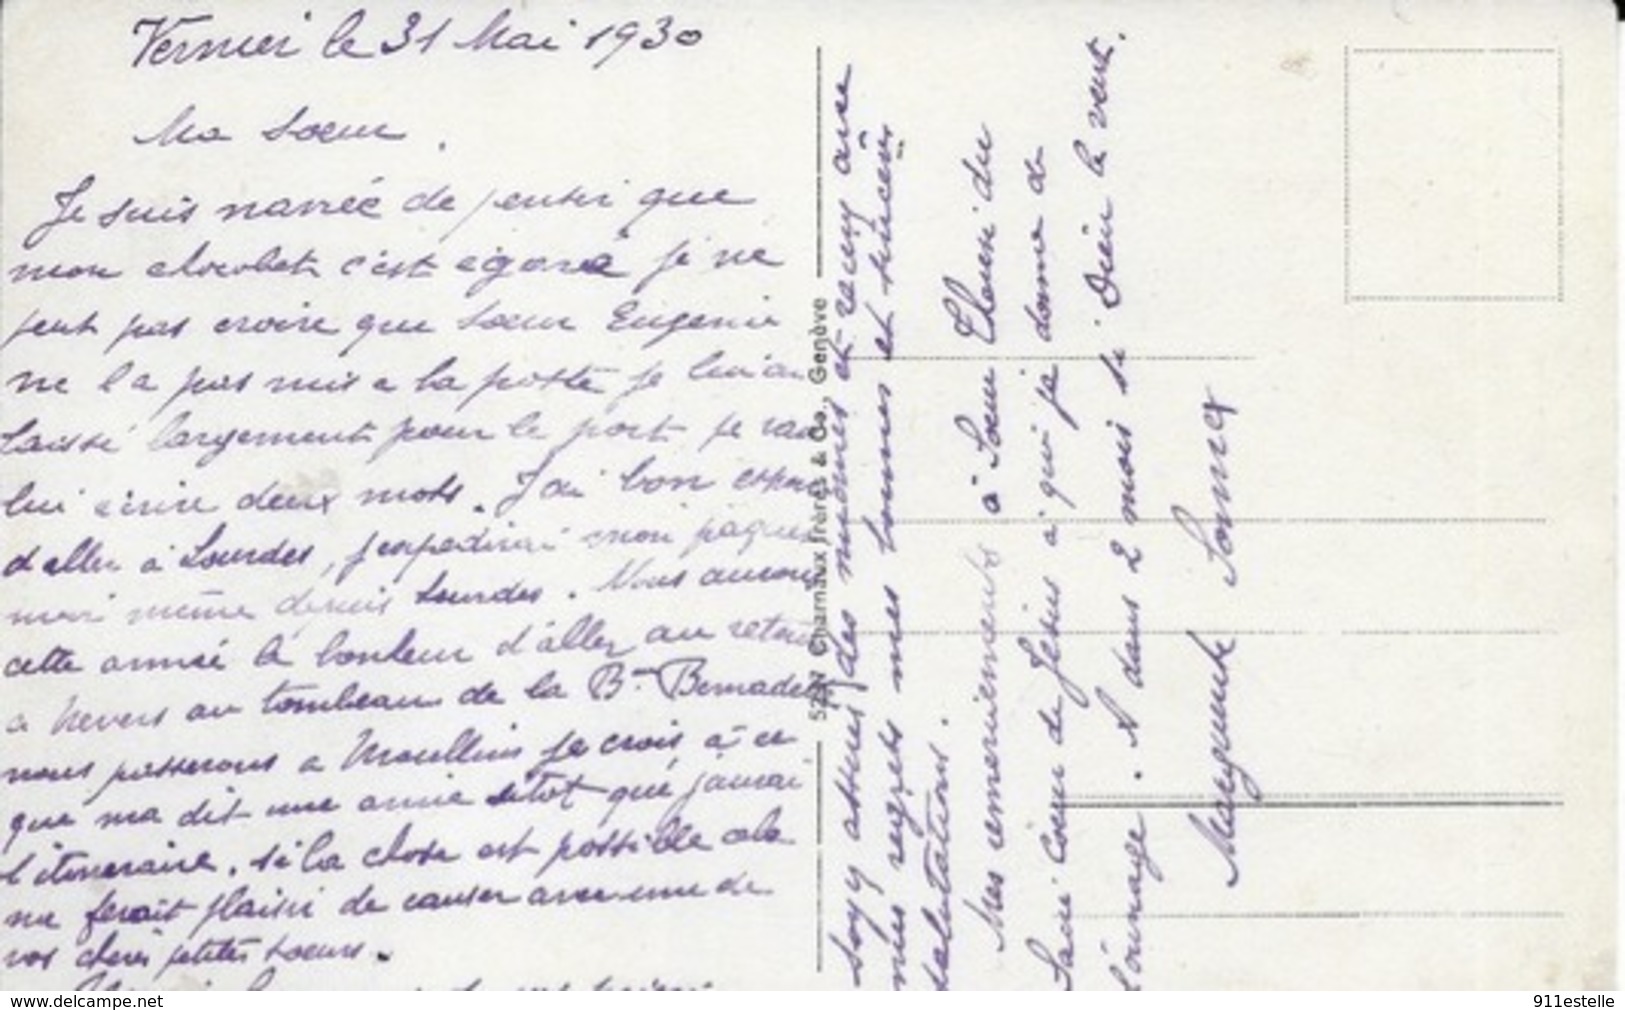 Vernier le 31 Mai 1930
Ma Soeur.
Je suis navrée de penser que
mon chocolat c'est égaré je ne
peut pas croire que Soeur Eugenie
ne l a pas mis a la poste je lui ai
laissé largement pour le port je vais
lui écrire deux mots. J'ai bon espoir
d'aller à Lourdes, j'expedirai mon paquet
moi même depuis Lourdes. Nous aurons
cette année le bonheur d'aller au retour
a Nevers au tombeau de la Bse Bernadette
nous passerons a Moullins je crois, à ce
que ma dit une amie sitot que j'aurai
l'itineraire. si la chose est possible cela
me ferait plaisir de causer avec une de
vos chères petites soeurs.
soyez assurés des miennes et recevez avec
mes regrets mes bonnes et sincères
salutations.
Mes remerciements à Soeur du
Sacré Coeur de Jésus à qui je donne de
l'ouvrage. A dans 2 mois si Dieu le veut.
Marguerite
5277 Charnaux frères & Co., Genève
www.delcampe.net
911estelle